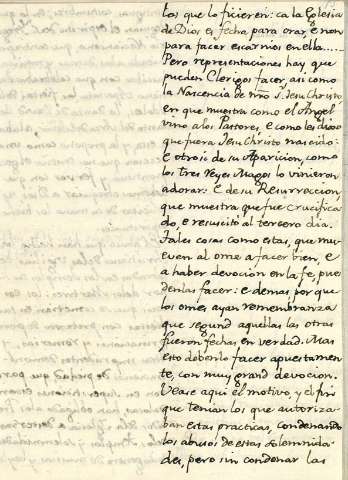 los que lo ficieren: ca la Eglesia
de Dios es fecha para orar, e non
para facer escarnios en ella.....
Pero representaciones hay que
pueden Clerigos facer, asi como
la Nascencia de nro S. Jesu Christo,
en que muestra como el Angel
vino a los Pastores, e como les dixo
que fuera Jesu Christo nascido:
E otrosi de su Aparicion, como
los tres Reyes Magos lo vinieron
adorar: E de su Resurreccion,
que muestra que fue crucifica
do, e resuscitó al tercero dia.
Tales cosas como estas, que mu-
even al ome a facer bien, e
a haber devocion en la fe, pue
denlas facer: e demas por que
los omes ayan remembranza
que segund aquellas las otras
fueron fechas en verdad. Mas
esto debenlo facer apuestamen
te, con muy grand devocion.
Vease aqui el motivo, y el fin
que tenian los que autoriza-
ban estas practicas, condenando
los abusos de estas solemnida-
des, pero sin condenar las